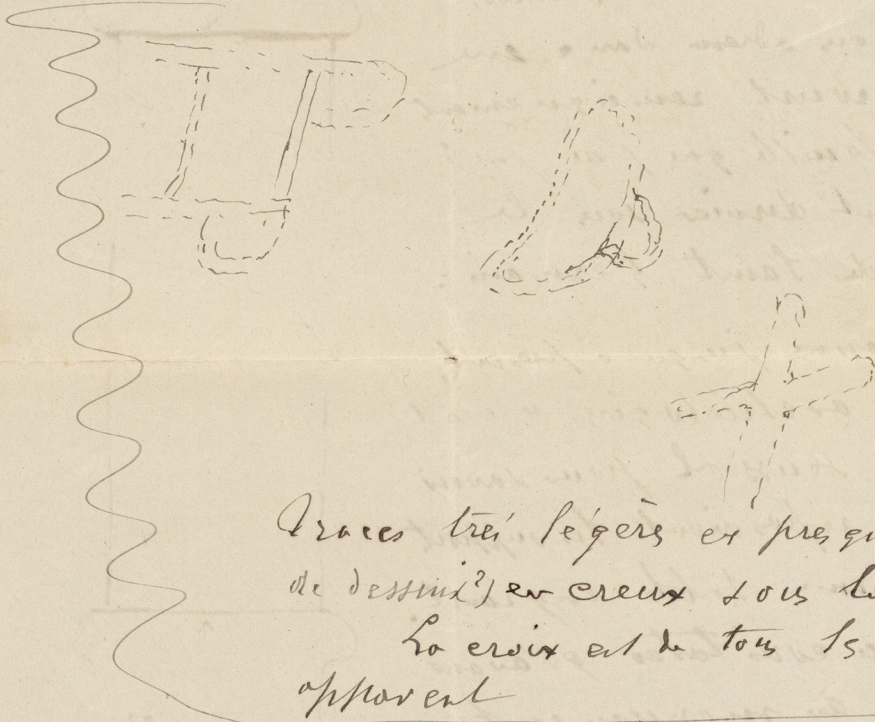 Traces très légères et presqu
de dessins?) en creux sous l
La croix est de tous les
apparent